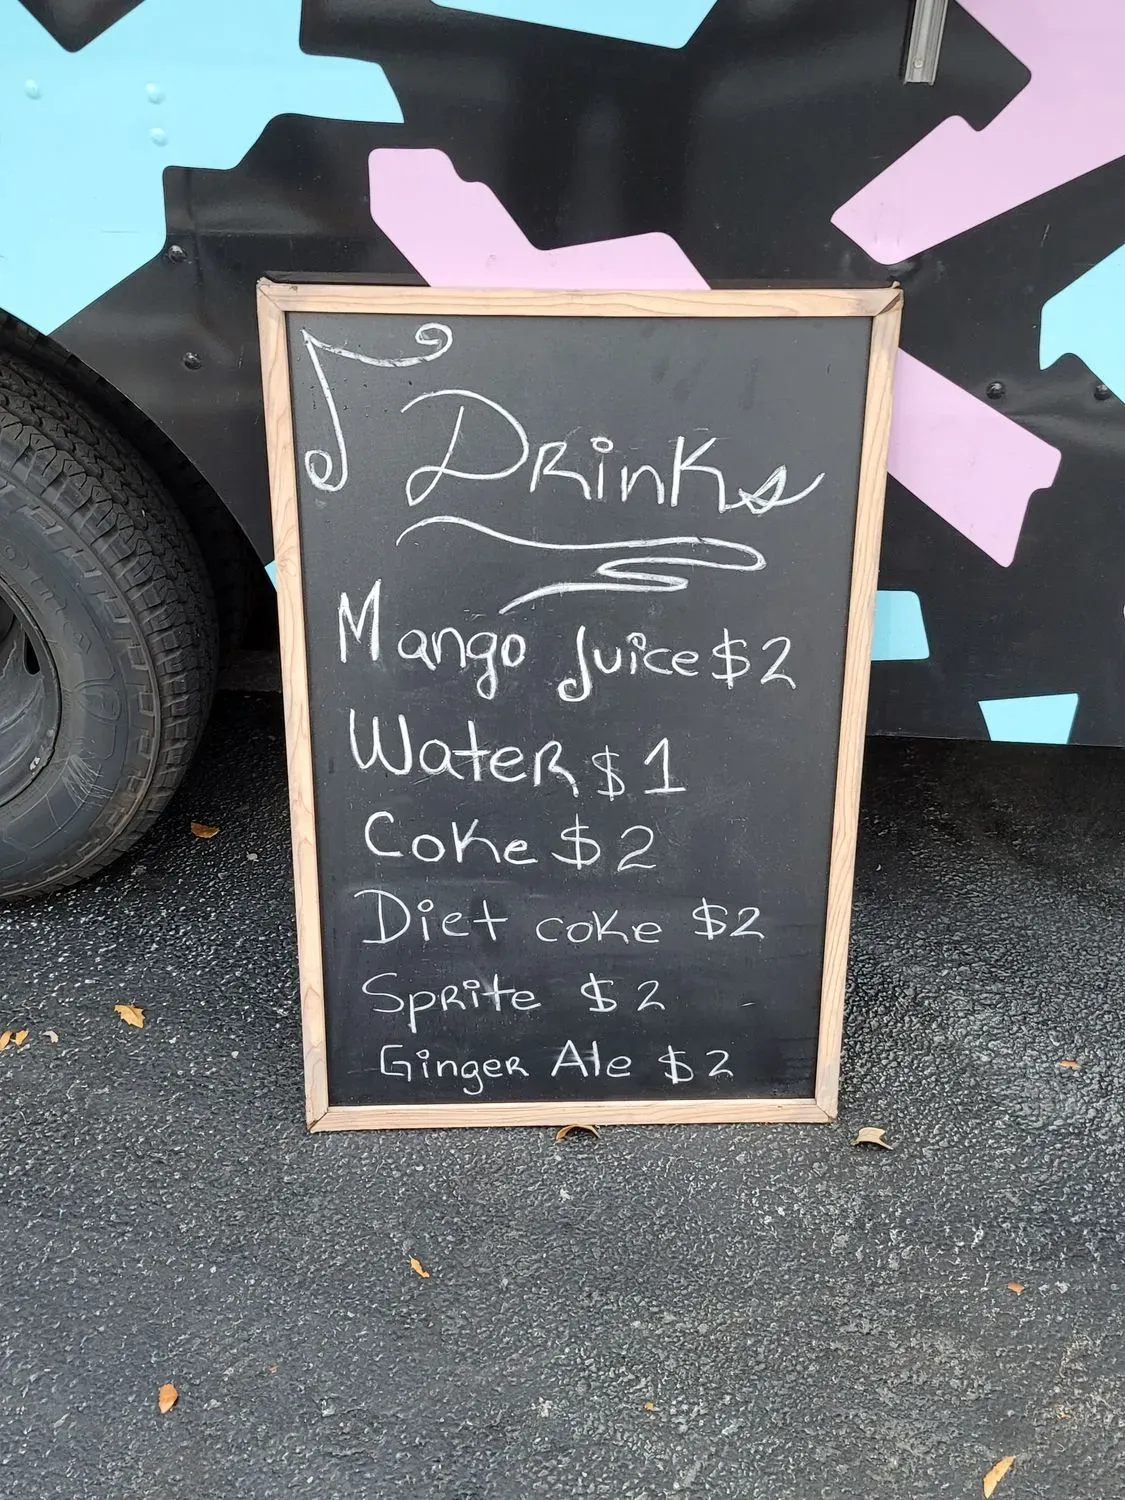 Drinks
Mango Juice $2
Water $1
Coke $2
Diet coke $2
Sprite $2
Ginger Ale $2